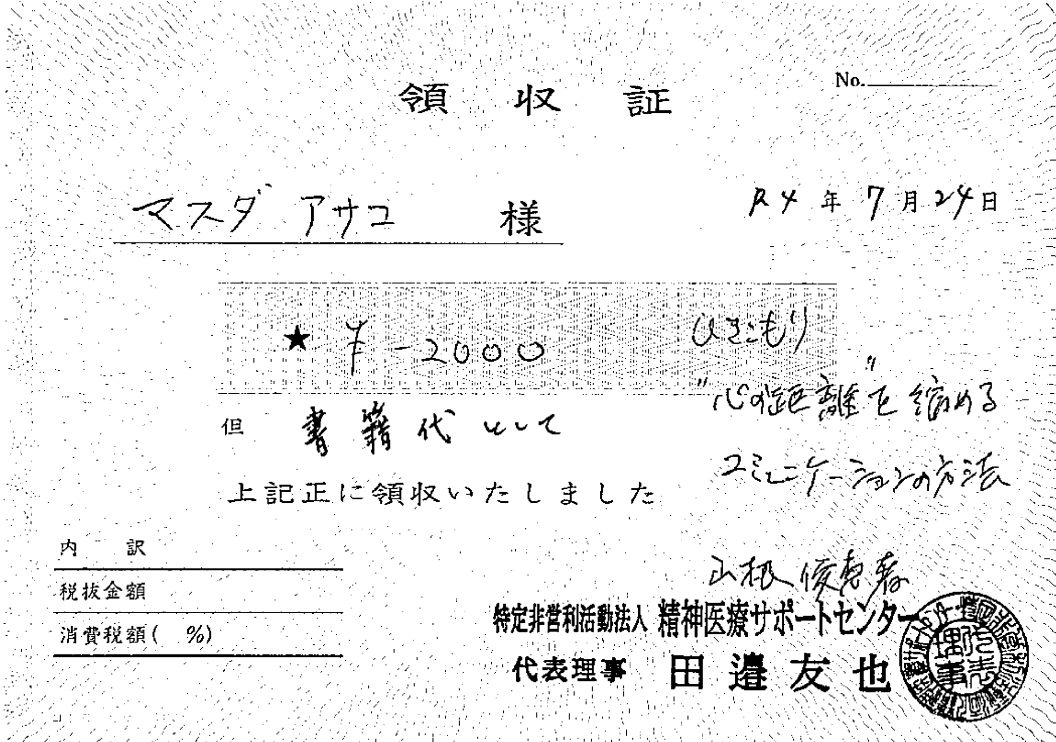 No.
領収証
マスダ アサコ 様
R4年7月24日
★ ¥-2000
ひきこもり
"心の距離"を縮める
コミュニケーションの方法
山根 俊恵著
但 書籍代として
上記正に領収いたしました
内 訳
税抜金額
消費税額( %)
特定非営利活動法人 精神医療サポートセンター
代表理事 田邉友也